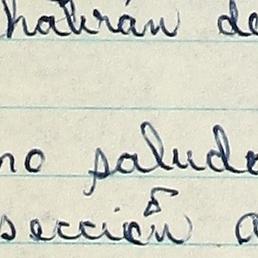 habrán de
no saludo
sección a